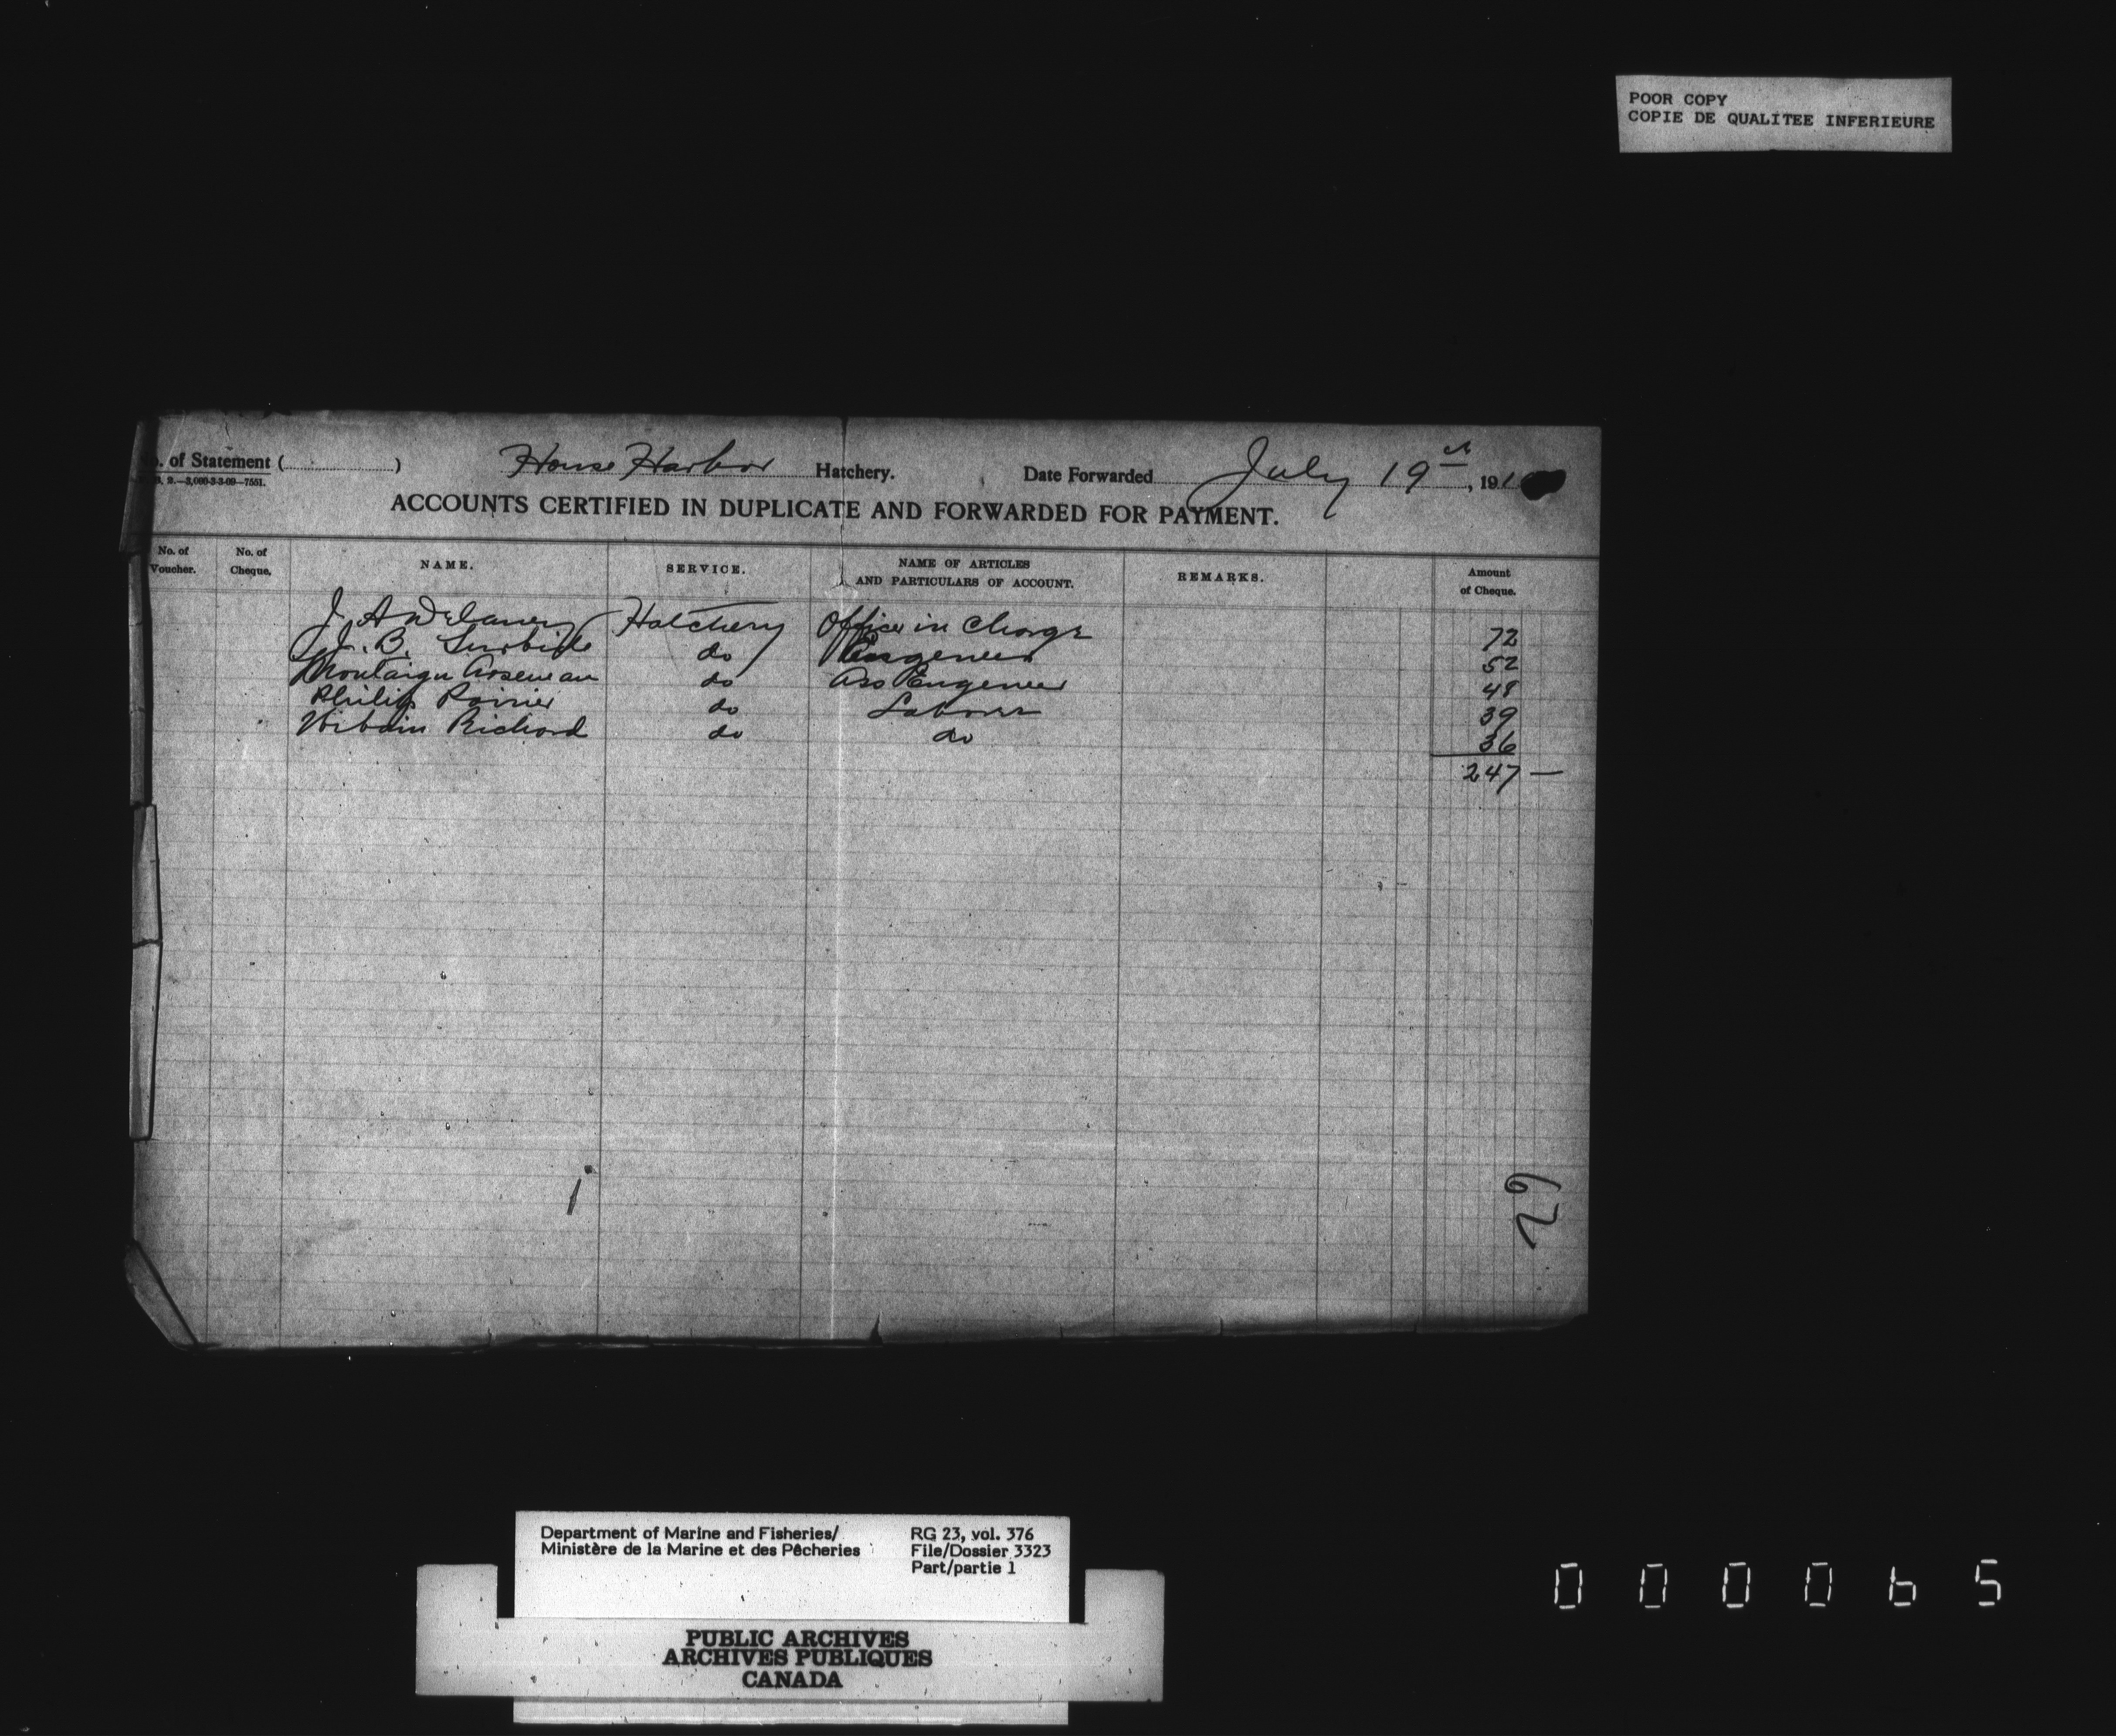 POOR COPY
COPIE DE QUALITEE INFERIEURE
of Statement (..............) House Harbor Hatchery. Date Forwarded July 19th, 191
2.—3,000-3-3-09—7551.
ACCOUNTS CERTIFIED IN DUPLICATE AND FORWARDED FOR PAYMENT.
No. of Voucher. No. of Cheque. NAME. SERVICE. NAME OF ARTICLES AND PARTICULARS OF ACCOUNT. REMARKS. Amount of Cheque.
J. A Delaney Hatchery Officer in Charge 72
J. B. do Engeneer 52
Montaigu Arseneau do Ass Engeneer 48
Philip Poirier do Labourer 39
Wibain Richard do do 36
247 —
29
Department of Marine and Fisheries/ RG 23, vol. 376
Ministère de la Marine et des Pêcheries File/Dossier 3323
Part/partie 1
PUBLIC ARCHIVES
ARCHIVES PUBLIQUES
CANADA
000065